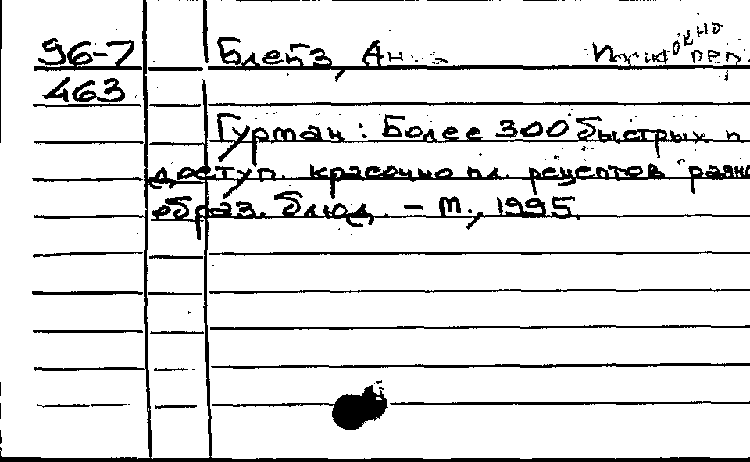 96-7 Блейз, Анна
463
Гурман: Более 300 быстрых и
доступ. красочно ил. рецептов разно
образ. блюд. – М., 1995.